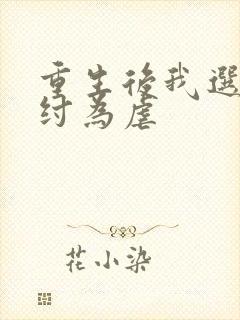 重生後我選
紂為虐
花小染